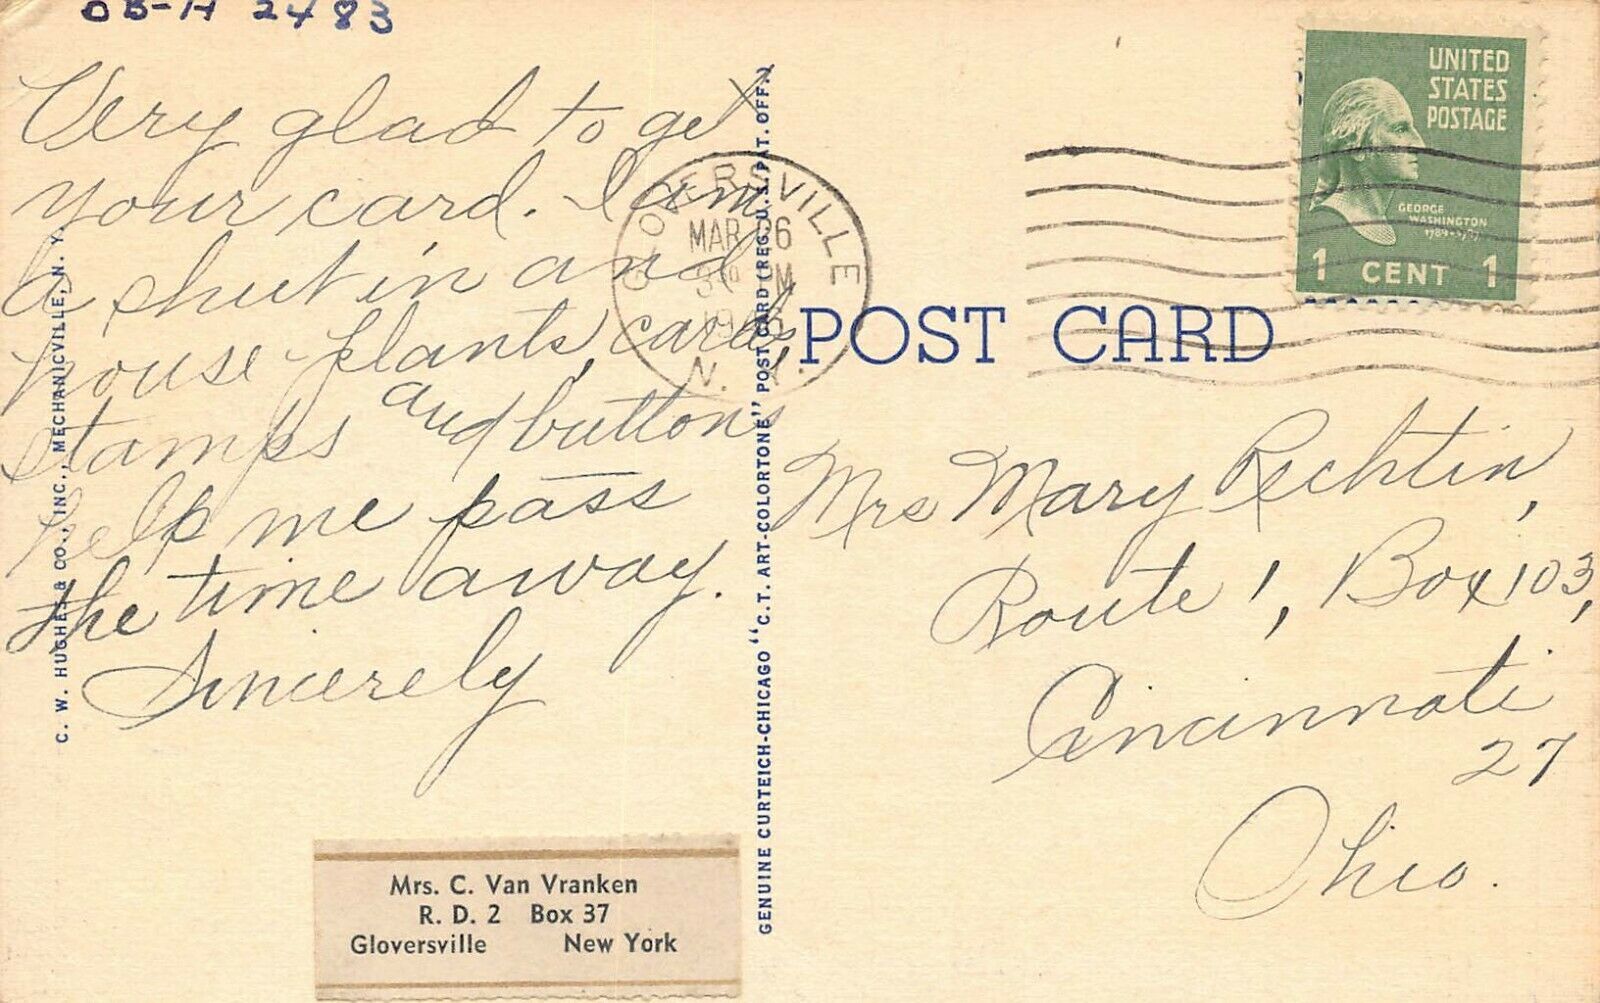 2483
Very glad to get
your card. I am
a shut in and
house plants, cards
stamps and buttons
help me pass
the time away.
Sincerely
Mrs. C. Van Vranken
R. D. 2 Box 37
Gloversville New York
C. W. HUGHES & CO., INC., MECHANICVILLE, N. Y.
GENUINE CURTEICH-CHICAGO "C. T. ART-COLORTONE" POST CARD (REG. U. S. PAT. OFF.)
GLOVERSVILLE
MAR 26
PM
N. Y.
UNITED
STATES
POSTAGE
GEORGE
WASHINGTON
1 CENT 1
POST CARD
Mrs Mary Rechtin,
Route 1, Box 103,
Cincinnati
27
Ohio.